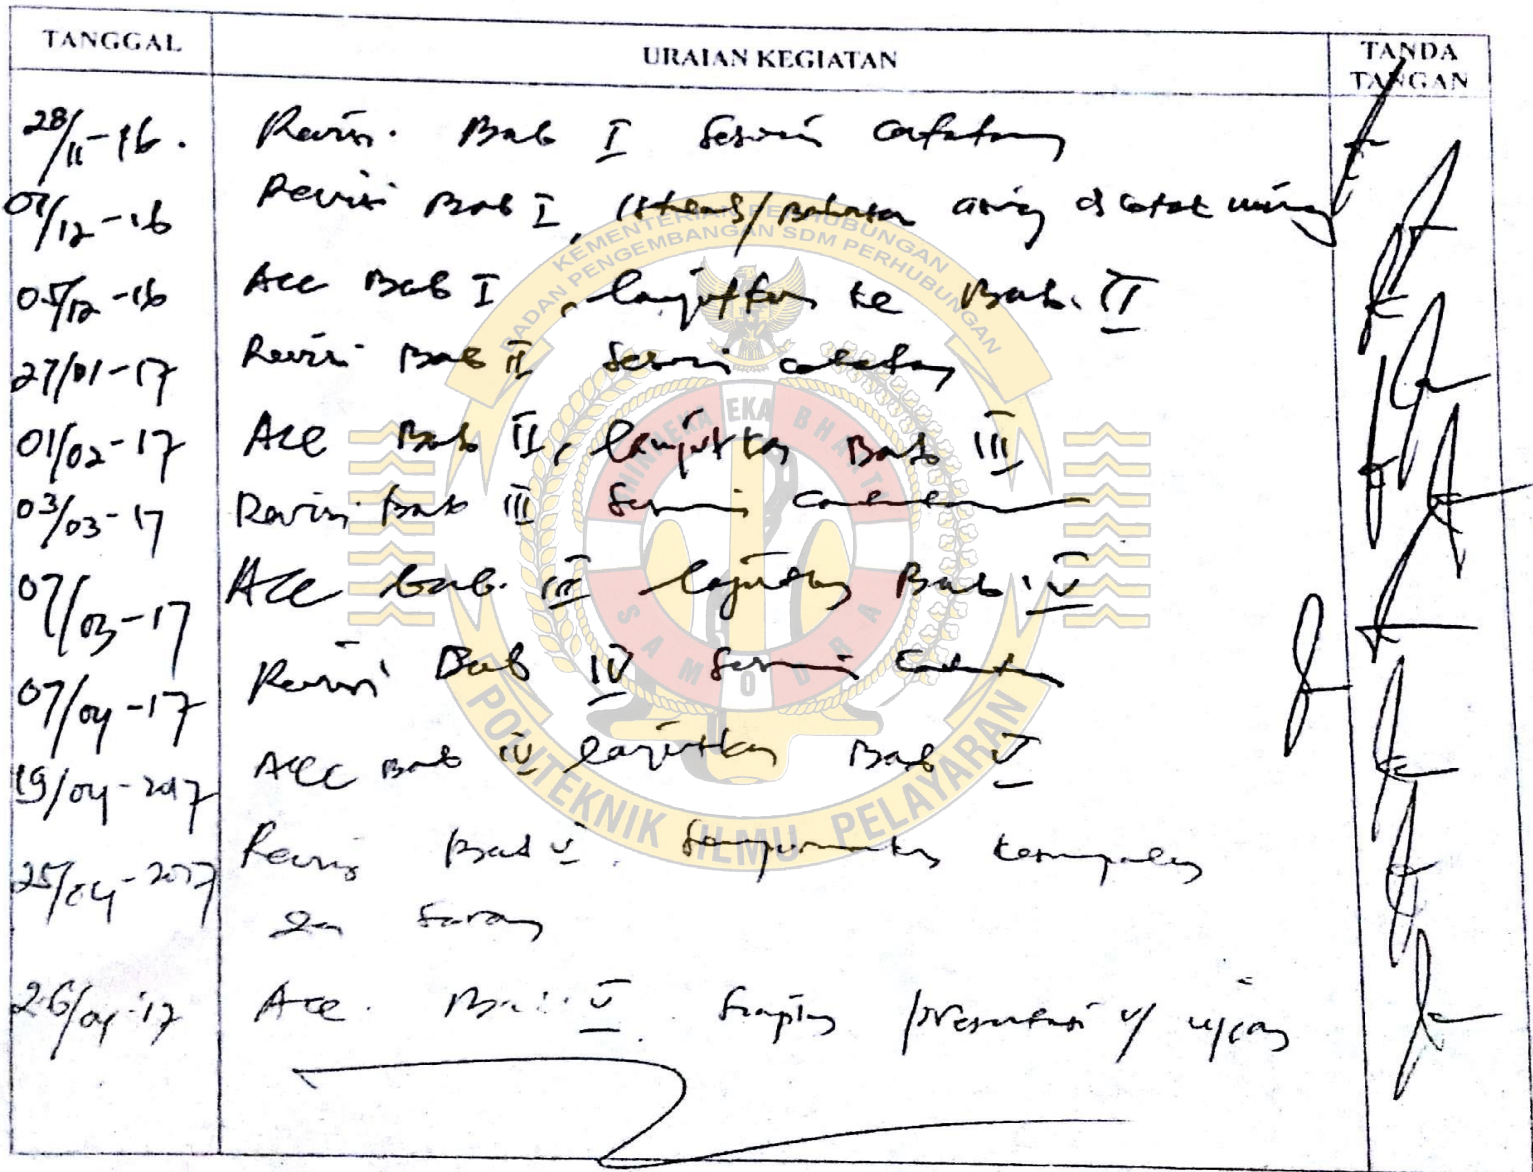 TANGGAL URAIAN KEGIATAN TANDA TANGAN
28/11-16. Revisi. Bab I sesuai catatan
01/12-16 Revisi Bab I, istilah/bahasa asing dicetak miring
05/12-16 Acc Bab I, lanjutkan ke Bab. II
27/01-17 Revisi Bab II sesuai catatan
01/02-17 Acc Bab II, lanjutkan Bab III
03/03-17 Revisi Bab III sesuai catatan
07/03-17 Acc bab. III lanjutkan Bab IV
07/04-17 Revisi Bab IV sesuai catatan
19/04-2017 Acc Bab IV lanjutkan Bab V
25/04-2017 Revisi Bab V. Sempurnakan kesimpulan
dan saran
26/04-17 Acc. Bab V. Siapkan presentasi u/ ujian
KEMENTERIAN PERHUBUNGAN
BADAN PENGEMBANGAN SDM PERHUBUNGAN
BHINNEKA EKA BHAKTI
SAMUDRA
POLITEKNIK ILMU PELAYARAN